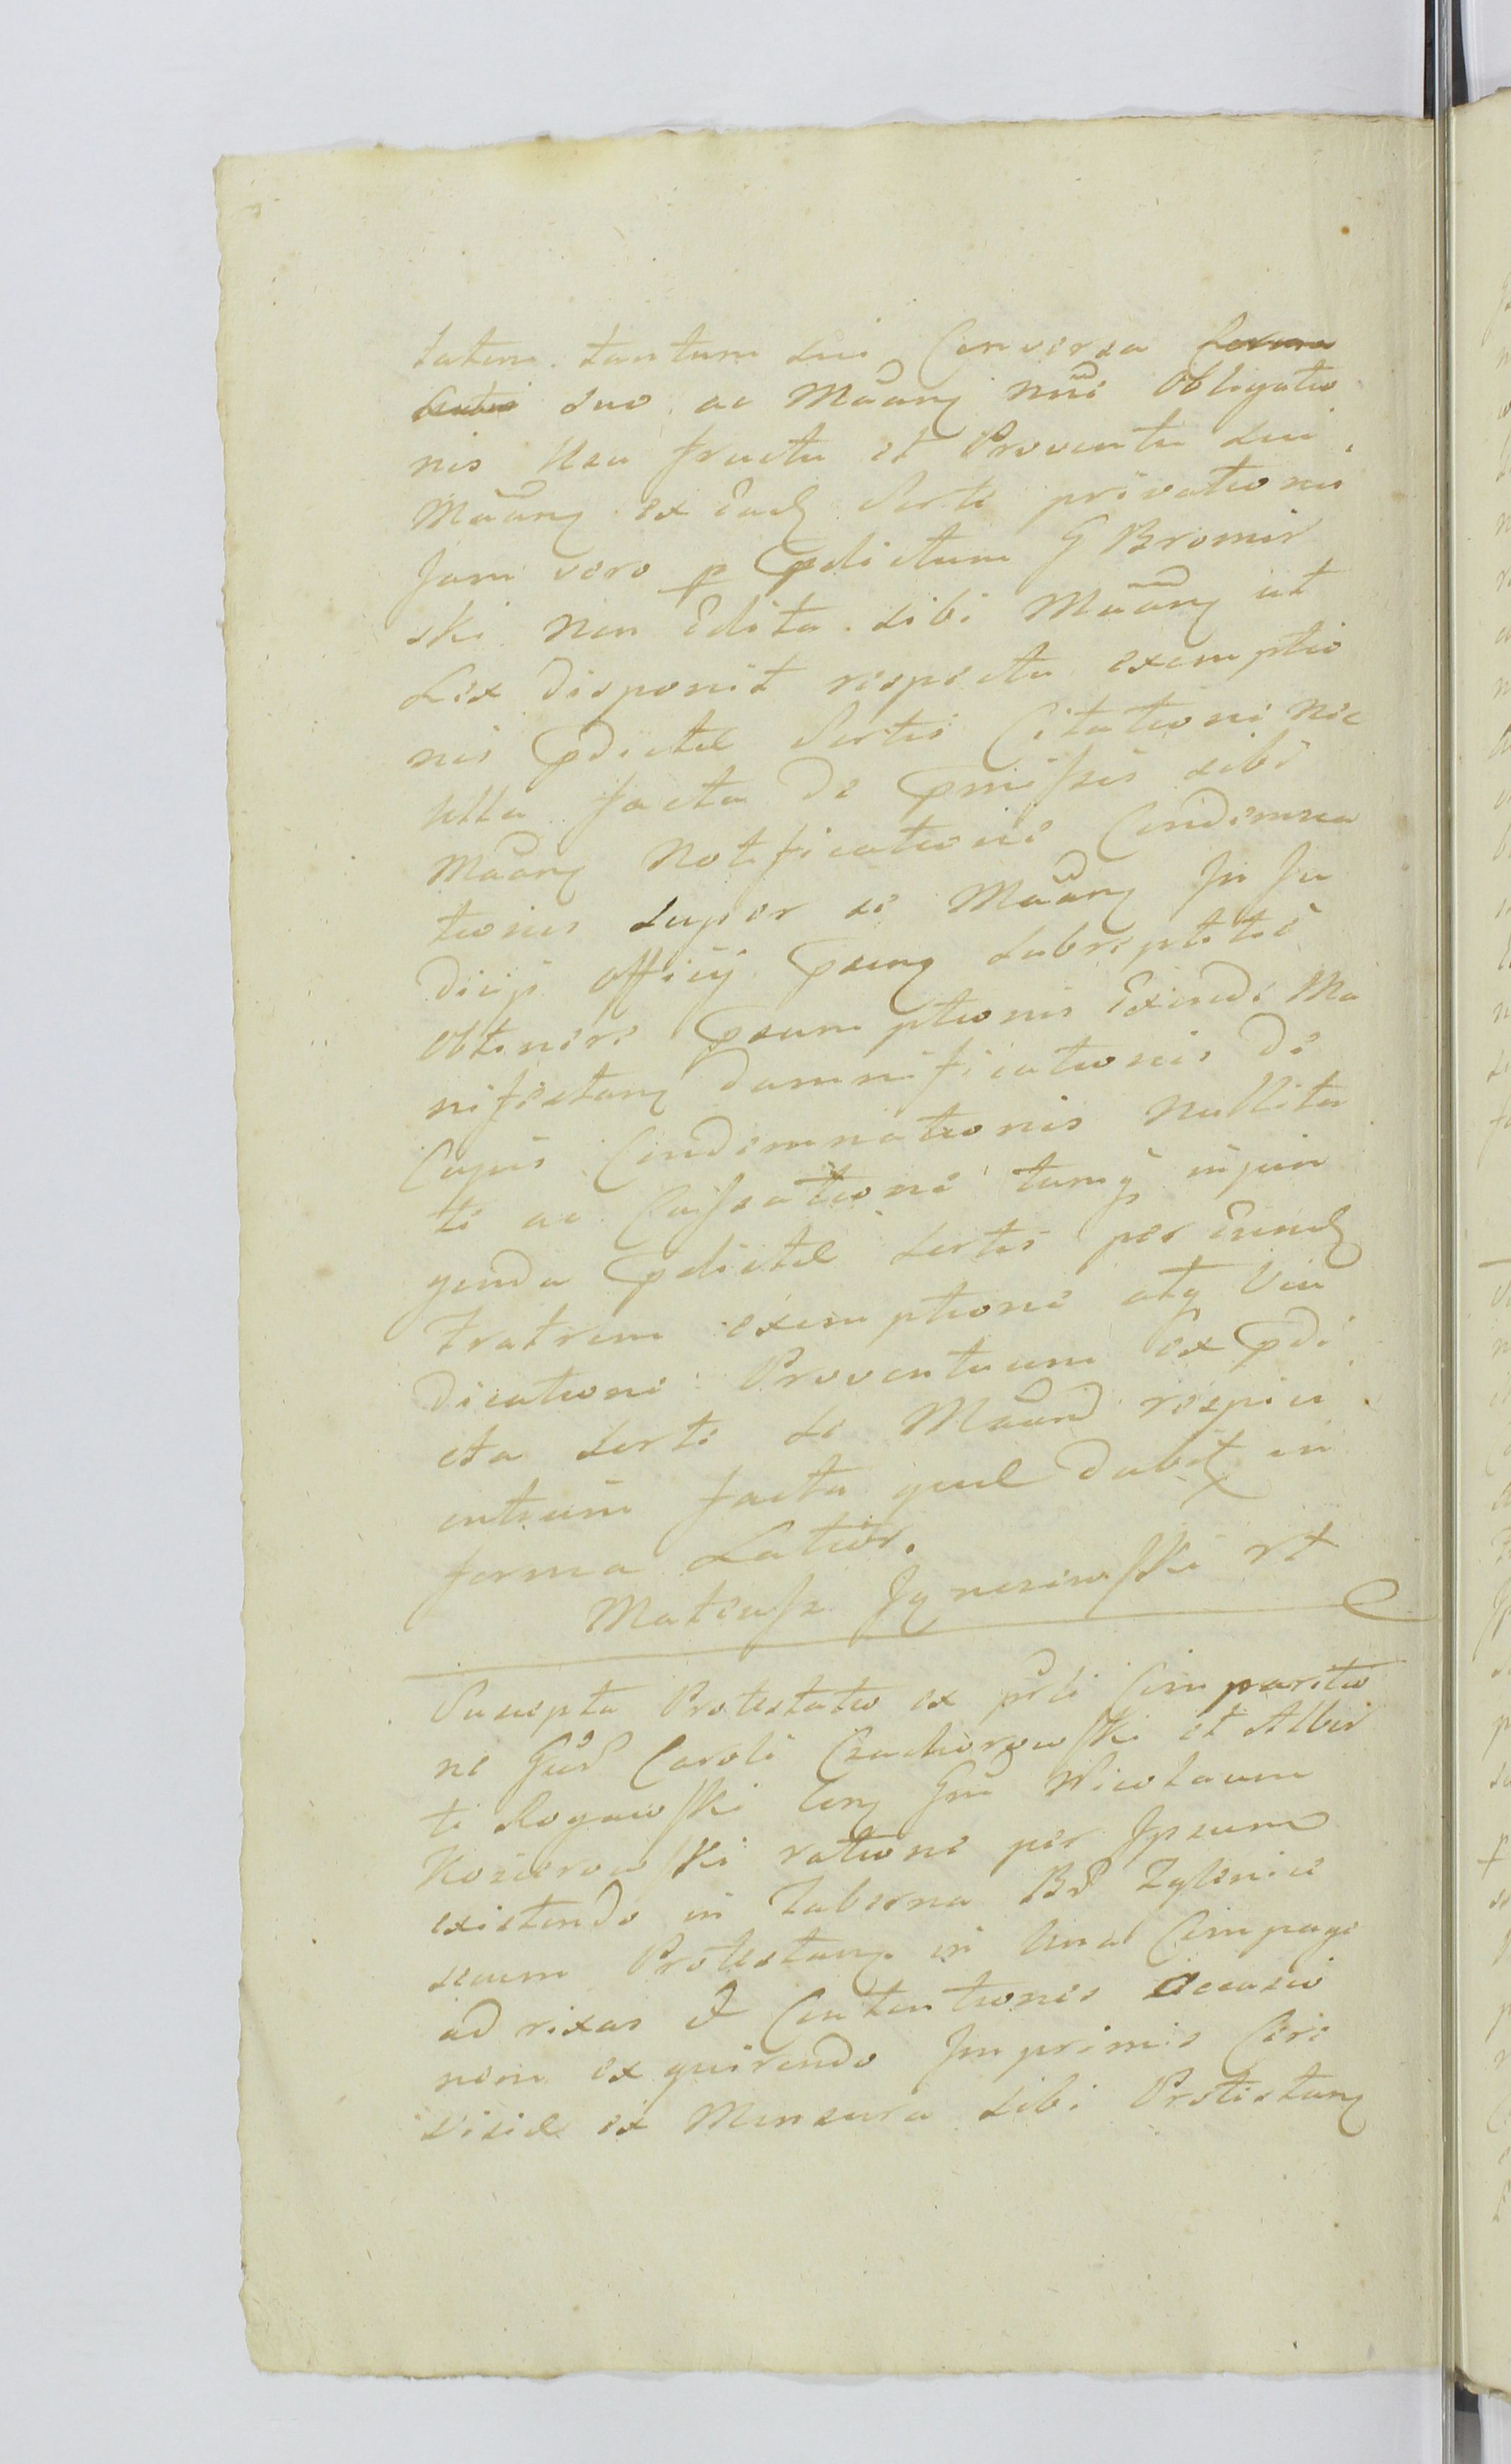 tatem tantum sui Conversa
suo ac Maang nni Obligatio
nis Usu fructu et Proventu sui
Maang ex Eadz Sorte privationis
Jam vero p pdictum G Bromir
ski non Edita sibi Maang ut
Lex disponit respectu exemptio
nis pdictæ Sortis Citatione nec
Ulla facta de pmissis sibi
Maang Notificatione Condemna
tionis super se Maang In Ju
dicijs Officij psang subreptitie
obtinere psumptionis Exinde Ma
nifestang damnificationis de
Cujus Condemnationis Nullita
te ac Cassatione tamq injun
genda pdictæ Sortis per Eundz
Fratrem exemptione atq Vin
dicatione Proventuum ex pdi
cta Sorte se Maand respici
entium facta quæ dabit in
forma Latior.
Mateusz mt
Suscepta Protestatio ex pte Comparitio
ne Gnd Caroli Czachorowski et Alber
ti Rogawski Cong Gm Nicolaum
Kosierowski ratione per Ipsum
existendo in Taberna Bd
secum Protestang in Una Compage
ad rixas et Contentiones Occasio
nem exquirendo Imprimis Cere
visiæ ex Mensura sibi Protestang